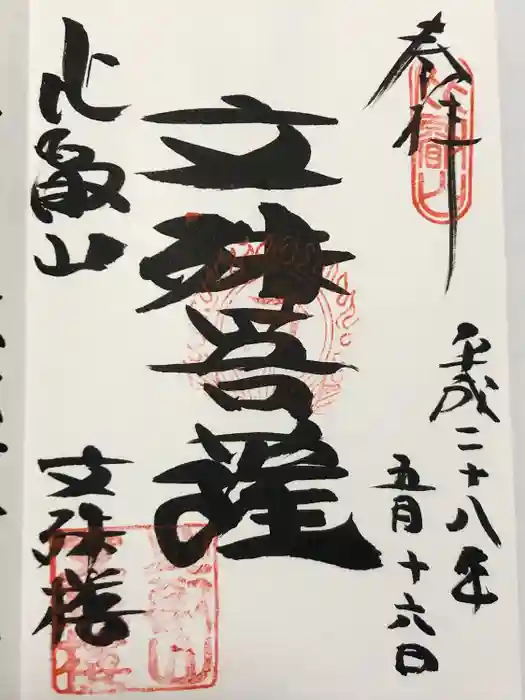 奉拝
比叡山
平成二十八年
五月十六日
文殊菩薩
比叡山
文殊楼